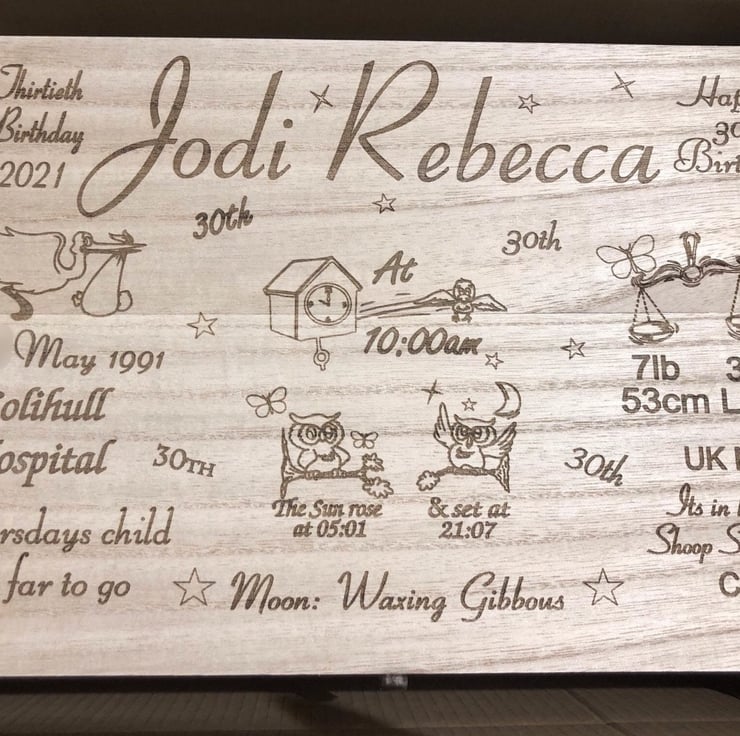 Thirtieth
Birthday
2021
Jodi Rebecca
Hap
30
Birt
30th
30th
At
10:00am
May 1991
olihull
ospital
30TH
rsdays child
far to go
The Sun rose
at 05:01
& set at
21:07
7lb 3
53cm L
30th
UK
Its in
Shoop S
C
Moon: Waxing Gibbous